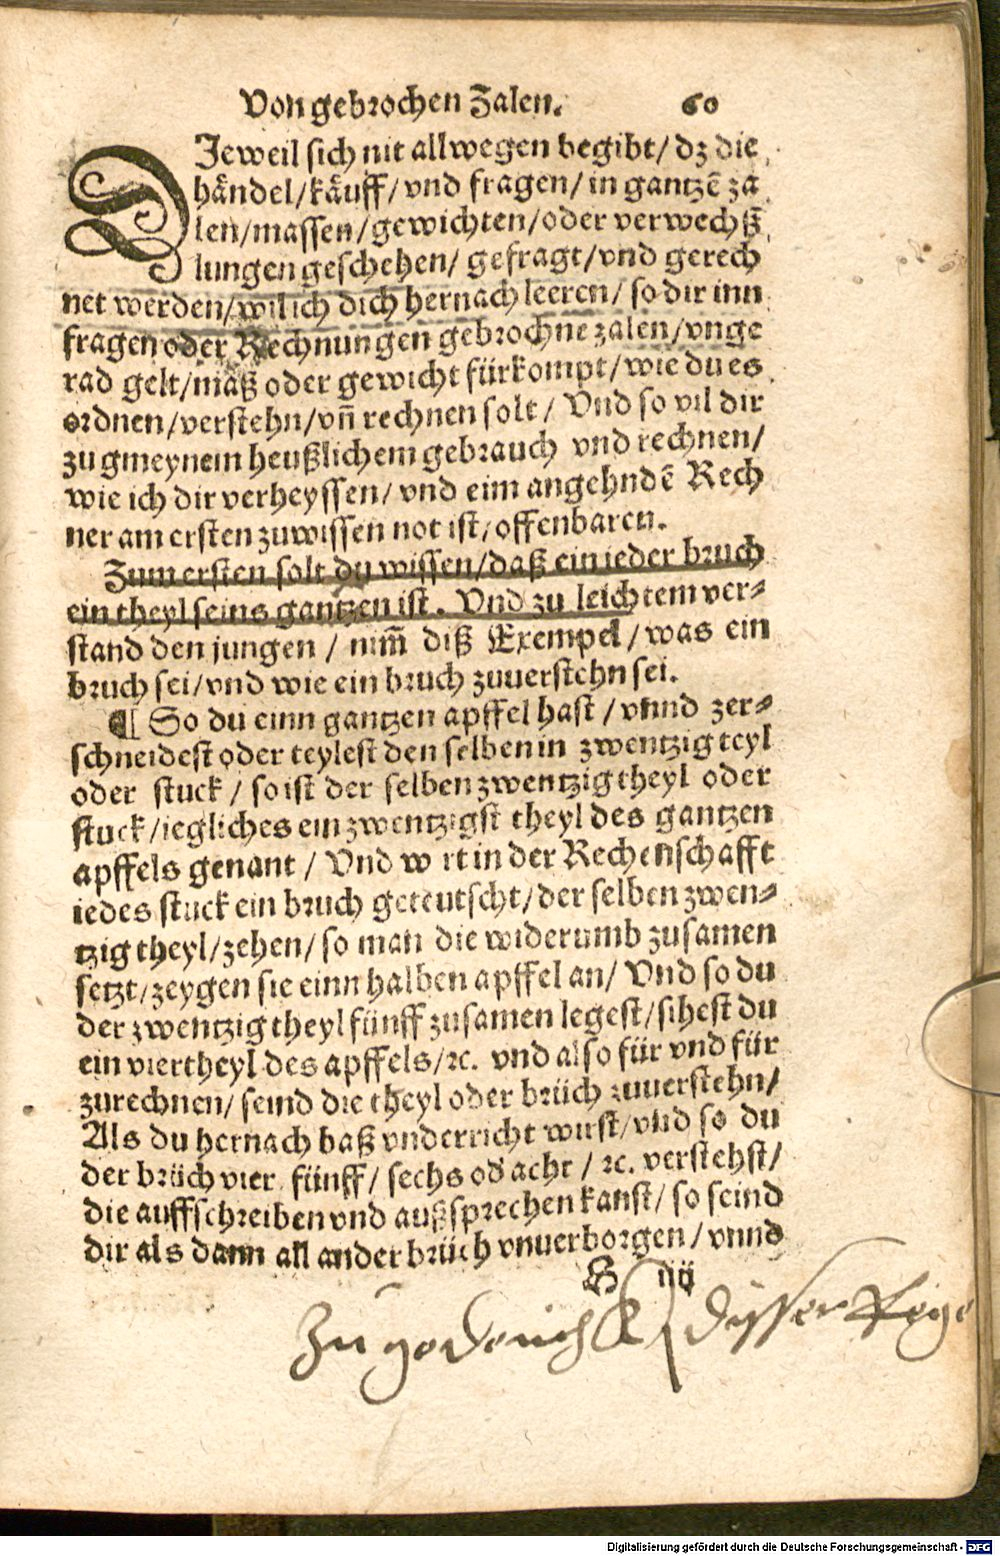 Von gebrochen Zalen. 60
DJeweil sich nit allwegen begibt/ dz die
händel/käuff/vnd fragen/in gantzē za
len/massen/gewichten/oder verwechß
lungen geschehen/ gefragt/vnd gerech
net werden/wil ich dich hernach leeren/ so dir inn
fragen oder Rechnungen gebrochne zalen/vnge
rad gelt/maß oder gewicht fürkompt/wie du es
ordnen/verstehn/vñ rechnen solt/ Vnd so vil dir
zu gmeynem heußlichem gebrauch vnd rechnen/
wie ich dir verheyssen/ vnd eim angehndē Rech
ner am ersten zuwissen not ist/offenbaren.
Zum ersten solt du wissen/daß ein ieder bruch
ein theyl seins gantzen ist. Vnd zu leichtem ver-
stand den jungen / nim̃ diß Exempel/was ein
bruch sei/vnd wie ein bruch zuuerstehn sei.
¶ So du einn gantzen apffel hast / vnnd zer-
schneidest oder teylest den selben in zwentzig teyl
oder stuck / so ist der selben zwentzig theyl oder
stuck/iegliches ein zwentzigst theyl des gantzen
apffels genant / Vnd wirt in der Rechenschafft
iedes stuck ein bruch geteutscht/der selben zwen-
tzig theyl/zehen/so man die widerumb zusamen
setzt/zeygen sie einn halben apffel an/ Vnd so du
der zwentzig theyl fünff zusamen legest/sihest du
ein viertheyl des apffels/ꝛc. vnd also für vnd für
zurechnen/ seind die theyl oder brüch zuuerstehn/
Als du hernach baß vnderricht wirst/vnd so du
der brüch vier fünff/ sechs od' acht / ꝛc. verstehst/
die auffschreiben vnd außsprechen kanst/ so seind
dir als dann all ander brüch vnuerborgen/ vnnd
H iiij
Zu gedenckh disser
Digitalisierung gefördert durch die Deutsche Forschungsgemeinschaft - DFG